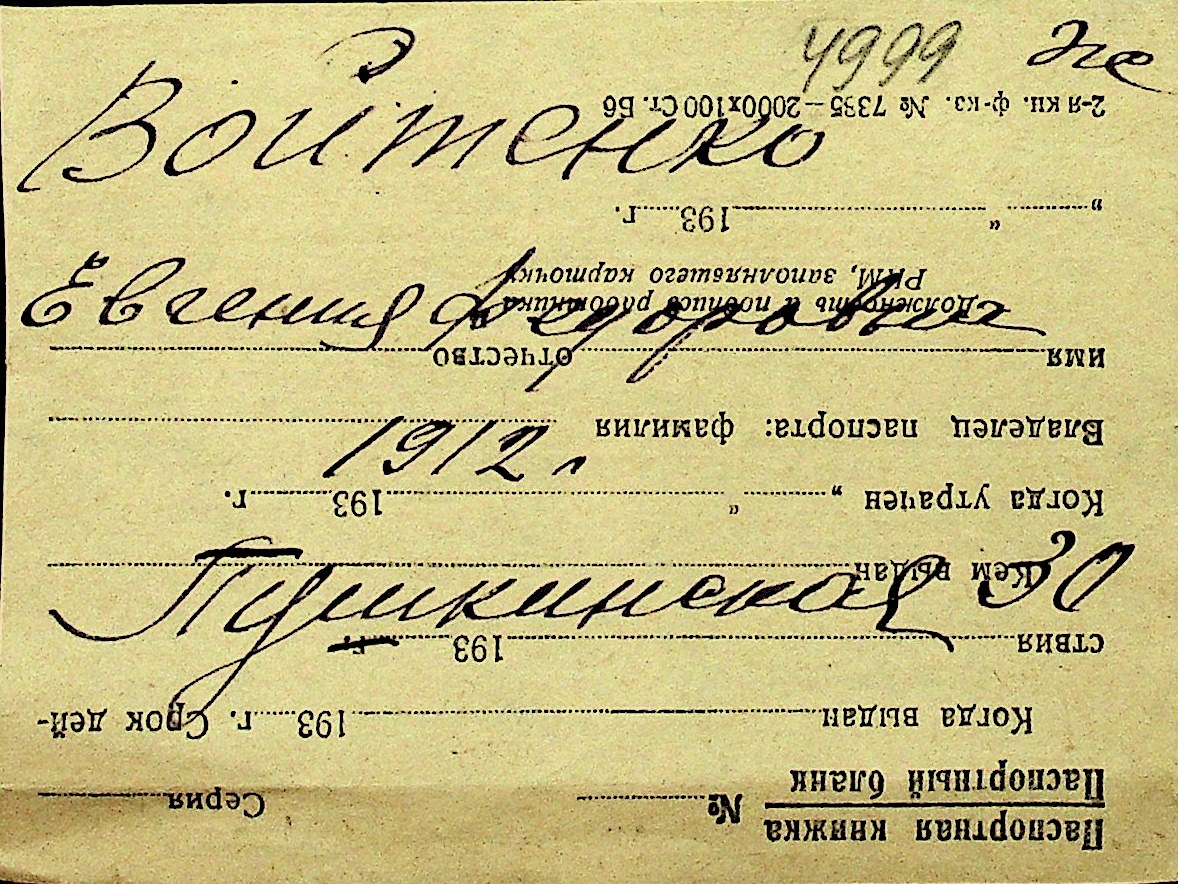 4999 же
Войтенко
Евгения Федоровна
1912 г
Пушкинская 30
Паспортная книжка
Паспортный бланк
№ Серия
Когда выдан 193 г. Срок дей-
ствия 193 г.
Кем выдан
Когда утрачен „ “ 193 г.
Владелец паспорта: фамилия
имя отчество
Должность и подпись работника
РКМ, заполнявшего карточку
„ “ 193 г.
2-я кн. ф-ка. № 7335—2000х100 Ст. Б6